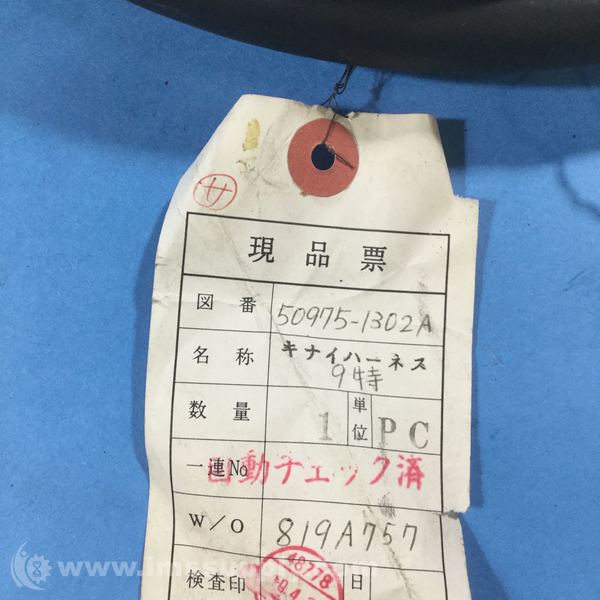 サ
現品票
図番 50975-1302A
名称 キナイハーネス
9特
数量 1 単位 PC
一連No 自動チェック済
W/O 819A757
検査印 48778 日